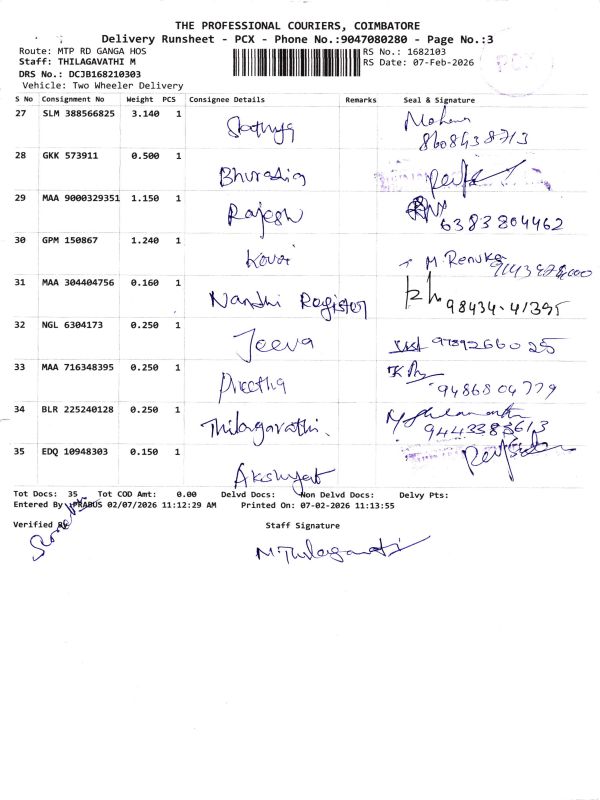 THE PROFESSIONAL COURIERS, COIMBATORE
Delivery Runsheet - PCX - Phone No.:9047080280 - Page No.:3
Route: MTP RD GANGA HOS
RS No.: 1682103
Staff: THILAGAVATHI M
RS Date: 07-Feb-2026
PCX
DRS No.: DCJB168210303
Vehicle: Two Wheeler Delivery
S No Consignment No Weight PCS Consignee Details Remarks Seal & Signature
27 SLM 388566825 3.140 1 Sathya Mohana
8608438713
28 GKK 573911 0.500 1 Bhuratia
29 MAA 9000329351 1.150 1 Rajesh
6383804462
30 GPM 150867 1.240 1 Kovai M. Renuka
31 MAA 304404756 0.160 1 Nandhi Register
98434-41395
32 NGL 6304173 0.250 1 Jeeva
33 MAA 716348395 0.250 1 Preetha
9486804779
34 BLR 225240128 0.250 1 Thilagavathi.
9443383613
35 EDQ 10948303 0.150 1
Tot Docs: 35 Tot COD Amt: 0.00 Delvd Docs: Non Delvd Docs: Delvy Pts:
Entered By :PRABUS 02/07/2026 11:12:29 AM Printed On: 07-02-2026 11:13:55
Verified By Staff Signature
M Thilagavathi